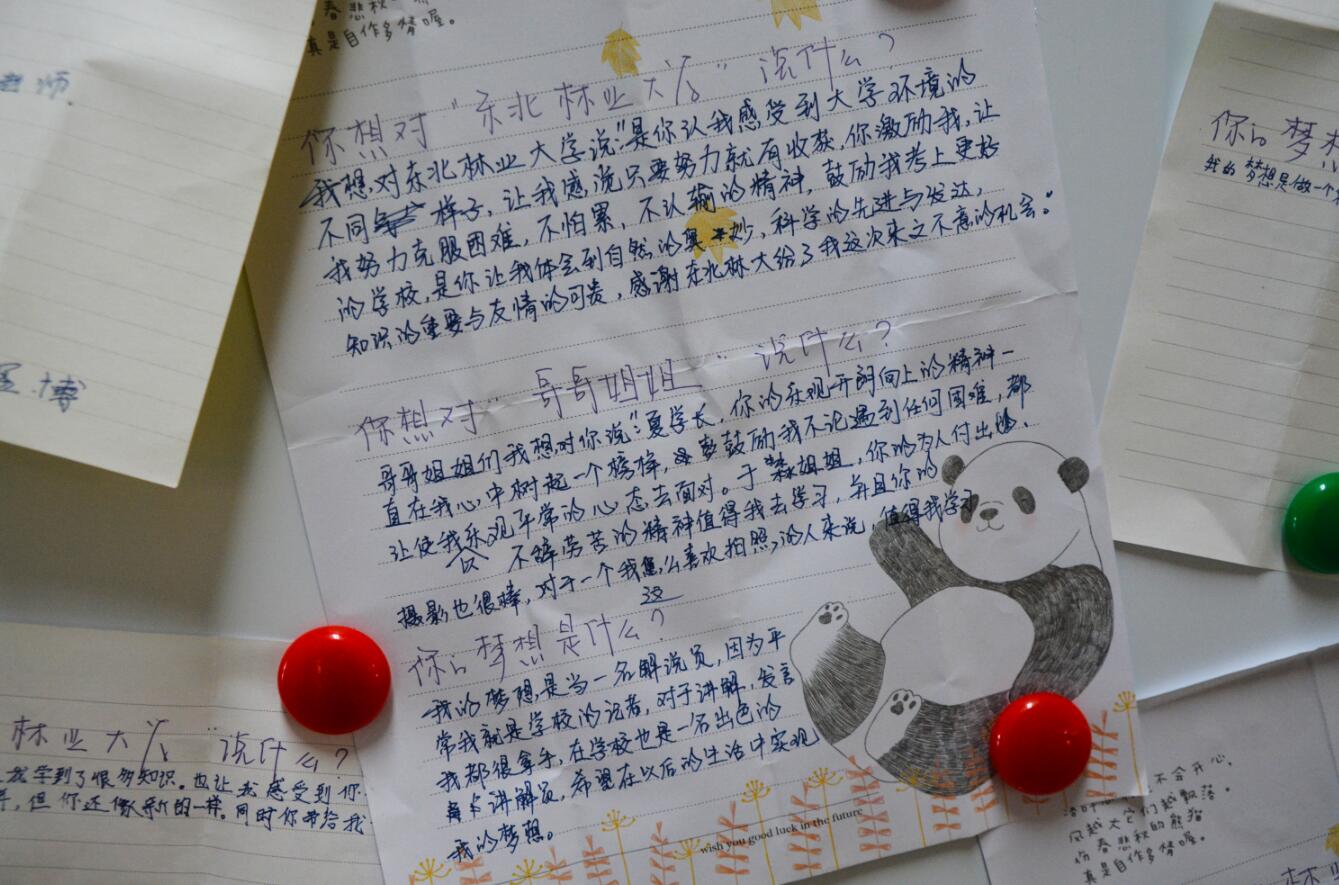 春悲秋
真是自作多情喔。
老师
博
你想对“东北林业大学”说什么？
我想对东北林业大学说：“是你让我感受到大学环境的
不同样子，让我感说只要努力就有收获，你激励我，让
我努力克服困难，不怕累，不认输的精神，鼓励我考上更好
的学校，是你让我体会到自然的奥妙，科学的先进与发达，
知识的重要与友情的可贵，感谢东北林大给了我这次来之不意的机会。”
你想对“哥哥姐姐”说什么？
哥哥姐姐们我想对你说：“夏学长，你的乐观开朗向上的精神一
直在我心中树起一个榜样，鼓励我不论遇到任何困难，都
让使我乐观平常的心态去面对。于淼姐姐，你的为人付出、
不辞劳苦的精神值得我去学习，并且你的
摄影也很棒，对于一个我这么喜欢拍照的人来说，值得我学习
你的梦想是什么？
我的梦想是当一名解说员，因为平
常我就是学校的记者，对于讲解，发言
我都很拿手，在学校也是一名出色的
讲解员，希望在以后的生活中实现
我的梦想。
wish you good luck in the future
你的梦想
我的梦想是做一个
林业大学”说什么？
我学到了很多知识。也让我感受到你
，但你还像新的一样。同时你带给我
不会开心。
风越大它们越飘落。
伤春悲秋的熊猫
真是自作多情喔。